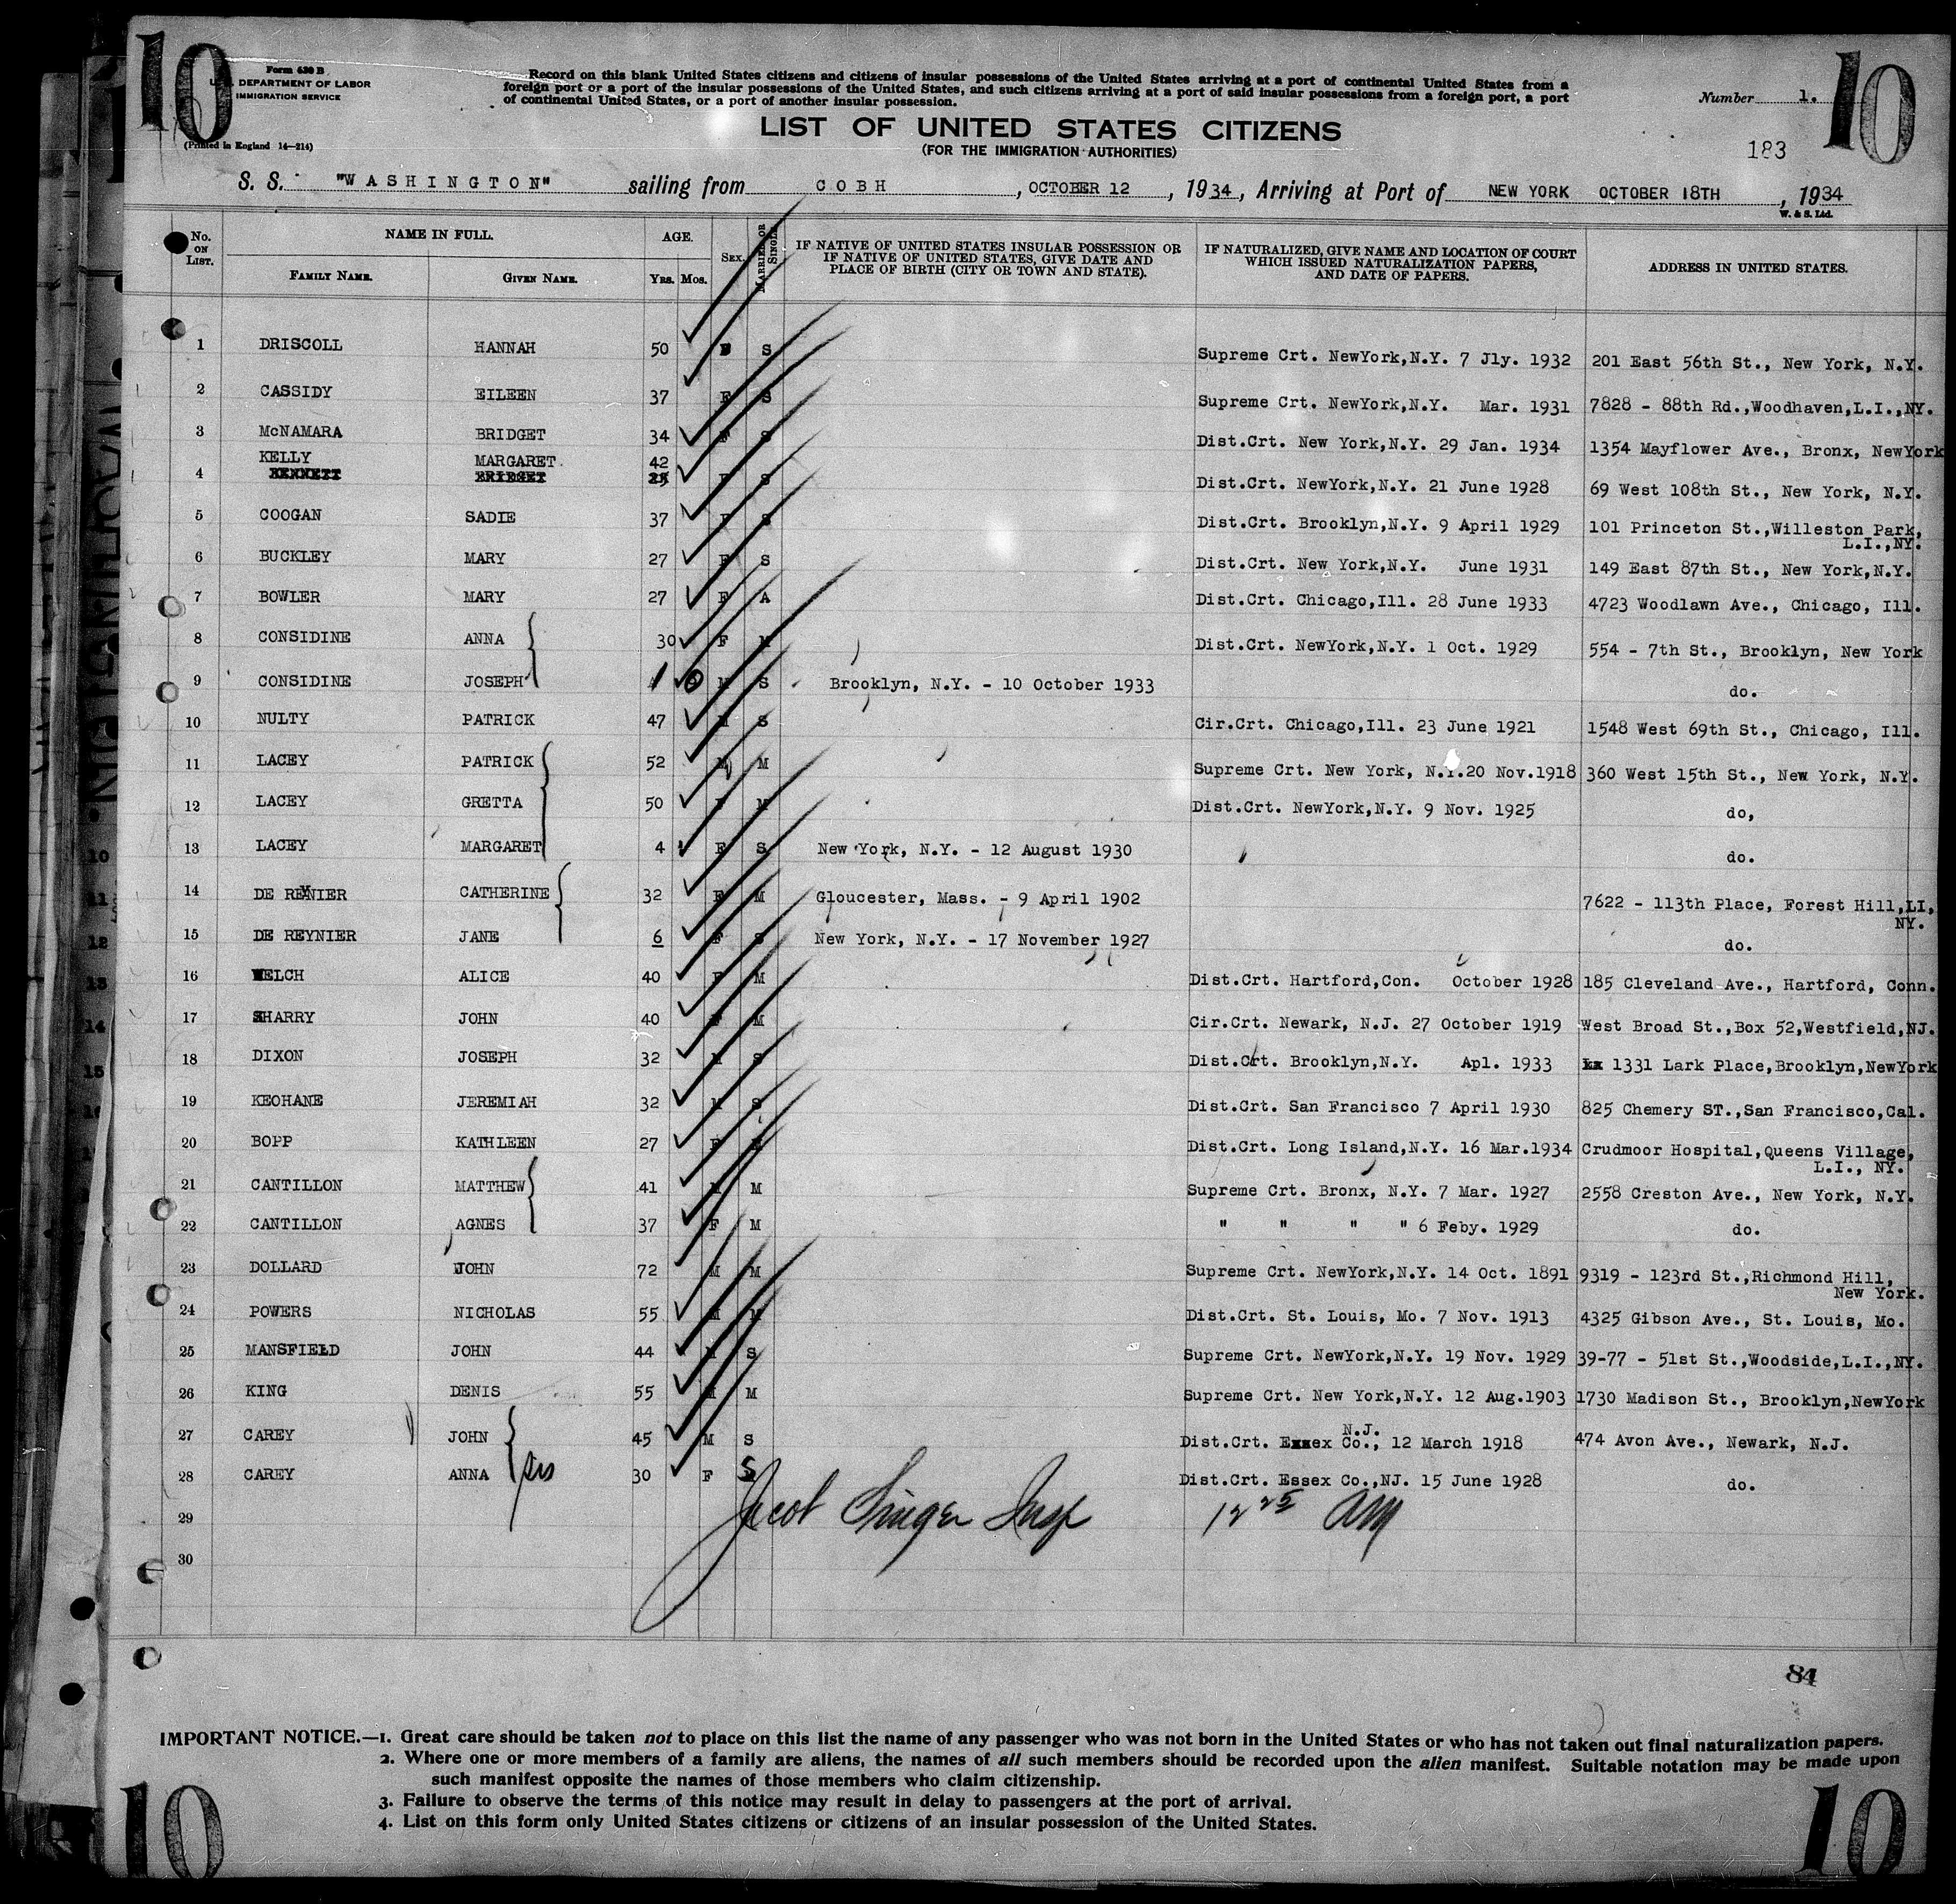 10
10
Form 630 B
U.S. DEPARTMENT OF LABOR
IMMIGRATION SERVICE
(Printed in England 14—214)
Record on this blank United States citizens and citizens of insular possessions of the United States arriving at a port of continental United States from a
foreign port or a port of the insular possessions of the United States, and such citizens arriving at a port of said insular possessions from a foreign port, a port
of continental United States, or a port of another insular possession.
Number 1.
LIST OF UNITED STATES CITIZENS
(FOR THE IMMIGRATION AUTHORITIES)
183
S. S. "WASHINGTON" sailing from COBH, OCTOBER 12, 1934, Arriving at Port of NEW YORK OCTOBER 18TH, 1934
W. & S. Ltd.
No. ON LIST. NAME IN FULL. AGE. SEX. MARRIED OR SINGLE. IF NATIVE OF UNITED STATES INSULAR POSSESSION OR IF NATIVE OF UNITED STATES, GIVE DATE AND PLACE OF BIRTH (CITY OR TOWN AND STATE). IF NATURALIZED, GIVE NAME AND LOCATION OF COURT WHICH ISSUED NATURALIZATION PAPERS, AND DATE OF PAPERS. ADDRESS IN UNITED STATES.
FAMILY NAME. GIVEN NAME. YRS. MOS.
1 DRISCOLL HANNAH 50 S Supreme Crt. NewYork,N.Y. 7 Jly. 1932 201 East 56th St., New York, N.Y.
2 CASSIDY EILEEN 37 F S Supreme Crt. NewYork,N.Y. Mar. 1931 7828 - 88th Rd.,Woodhaven,L.I.,NY.
3 McNAMARA BRIDGET 34 F S Dist.Crt. New York,N.Y. 29 Jan. 1934 1354 Mayflower Ave., Bronx, NewYork
KELLY MARGARET. 42
4 BENNETT BRIDGET 25 F S Dist.Crt. NewYork,N.Y. 21 June 1928 69 West 108th St., New York, N.Y.
5 COOGAN SADIE 37 F S Dist.Crt. Brooklyn,N.Y. 9 April 1929 101 Princeton St.,Willeston Park,
L.I.,NY.
6 BUCKLEY MARY 27 F S Dist.Crt. New York,N.Y. June 1931 149 East 87th St., New York,N.Y.
7 BOWLER MARY 27 F A Dist.Crt. Chicago,Ill. 28 June 1933 4723 Woodlawn Ave., Chicago, Ill.
8 CONSIDINE ANNA 30 F M Dist.Crt. NewYork,N.Y. 1 Oct. 1929 554 - 7th St., Brooklyn, New York
9 CONSIDINE JOSEPH 1 0 M S Brooklyn, N.Y. - 10 October 1933 do.
10 NULTY PATRICK 47 M S Cir.Crt. Chicago,Ill. 23 June 1921 1548 West 69th St., Chicago, Ill.
11 LACEY PATRICK 52 M M Supreme Crt. New York, N.Y.20 Nov.1918 360 West 15th St., New York, N.Y.
12 LACEY GRETTA 50 F M Dist.Crt. NewYork,N.Y. 9 Nov. 1925 do,
13 LACEY MARGARET 4 F S New York, N.Y. - 12 August 1930 do.
14 DE REYNIER CATHERINE 32 F M Gloucester, Mass. - 9 April 1902 7622 - 113th Place, Forest Hill,LI,
NY.
15 DE REYNIER JANE 6 F S New York, N.Y. - 17 November 1927 do.
16 WELCH ALICE 40 F M Dist.Crt. Hartford,Con. October 1928 185 Cleveland Ave., Hartford, Conn.
17 SHARRY JOHN 40 F M Cir.Crt. Newark, N.J. 27 October 1919 West Broad St.,Box 52,Westfield,NJ.
18 DIXON JOSEPH 32 M S Dist.Crt. Brooklyn,N.Y. Apl. 1933 1331 Lark Place,Brooklyn,NewYork
19 KEOHANE JEREMIAH 32 M S Dist.Crt. San Francisco 7 April 1930 825 Chemery ST.,San Francisco,Cal.
20 BOPP KATHLEEN 27 F M Dist.Crt. Long Island,N.Y. 16 Mar.1934 Crudmoor Hospital,Queens Village,
L.I., NY.
21 CANTILLON MATTHEW 41 M M Supreme Crt. Bronx, N.Y. 7 Mar. 1927 2558 Creston Ave., New York, N.Y.
22 CANTILLON AGNES 37 F M " " " " 6 Feby. 1929 do.
23 DOLLARD JOHN 72 M M Supreme Crt. NewYork,N.Y. 14 Oct. 1891 9319 - 123rd St.,Richmond Hill,
New York.
24 POWERS NICHOLAS 55 M M Dist.Crt. St. Louis, Mo. 7 Nov. 1913 4325 Gibson Ave., St. Louis, Mo.
25 MANSFIELD JOHN 44 M S Supreme Crt. NewYork,N.Y. 19 Nov. 1929 39-77 - 51st St.,Woodside,L.I.,NY.
26 KING DENIS 55 M M Supreme Crt. New York,N.Y. 12 Aug.1903 1730 Madison St., Brooklyn,NewYork
N.J.
27 CAREY JOHN 45 M S Dist.Crt. Essex Co., 12 March 1918 474 Avon Ave., Newark, N.J.
28 CAREY ANNA sis 30 F S Dist.Crt. Essex Co.,NJ. 15 June 1928 do.
29 Jacob Singer Insp 12 25 AM
30
84
IMPORTANT NOTICE.—1. Great care should be taken not to place on this list the name of any passenger who was not born in the United States or who has not taken out final naturalization papers.
2. Where one or more members of a family are aliens, the names of all such members should be recorded upon the alien manifest. Suitable notation may be made upon
such manifest opposite the names of those members who claim citizenship.
3. Failure to observe the terms of this notice may result in delay to passengers at the port of arrival.
4. List on this form only United States citizens or citizens of an insular possession of the United States.
10
10